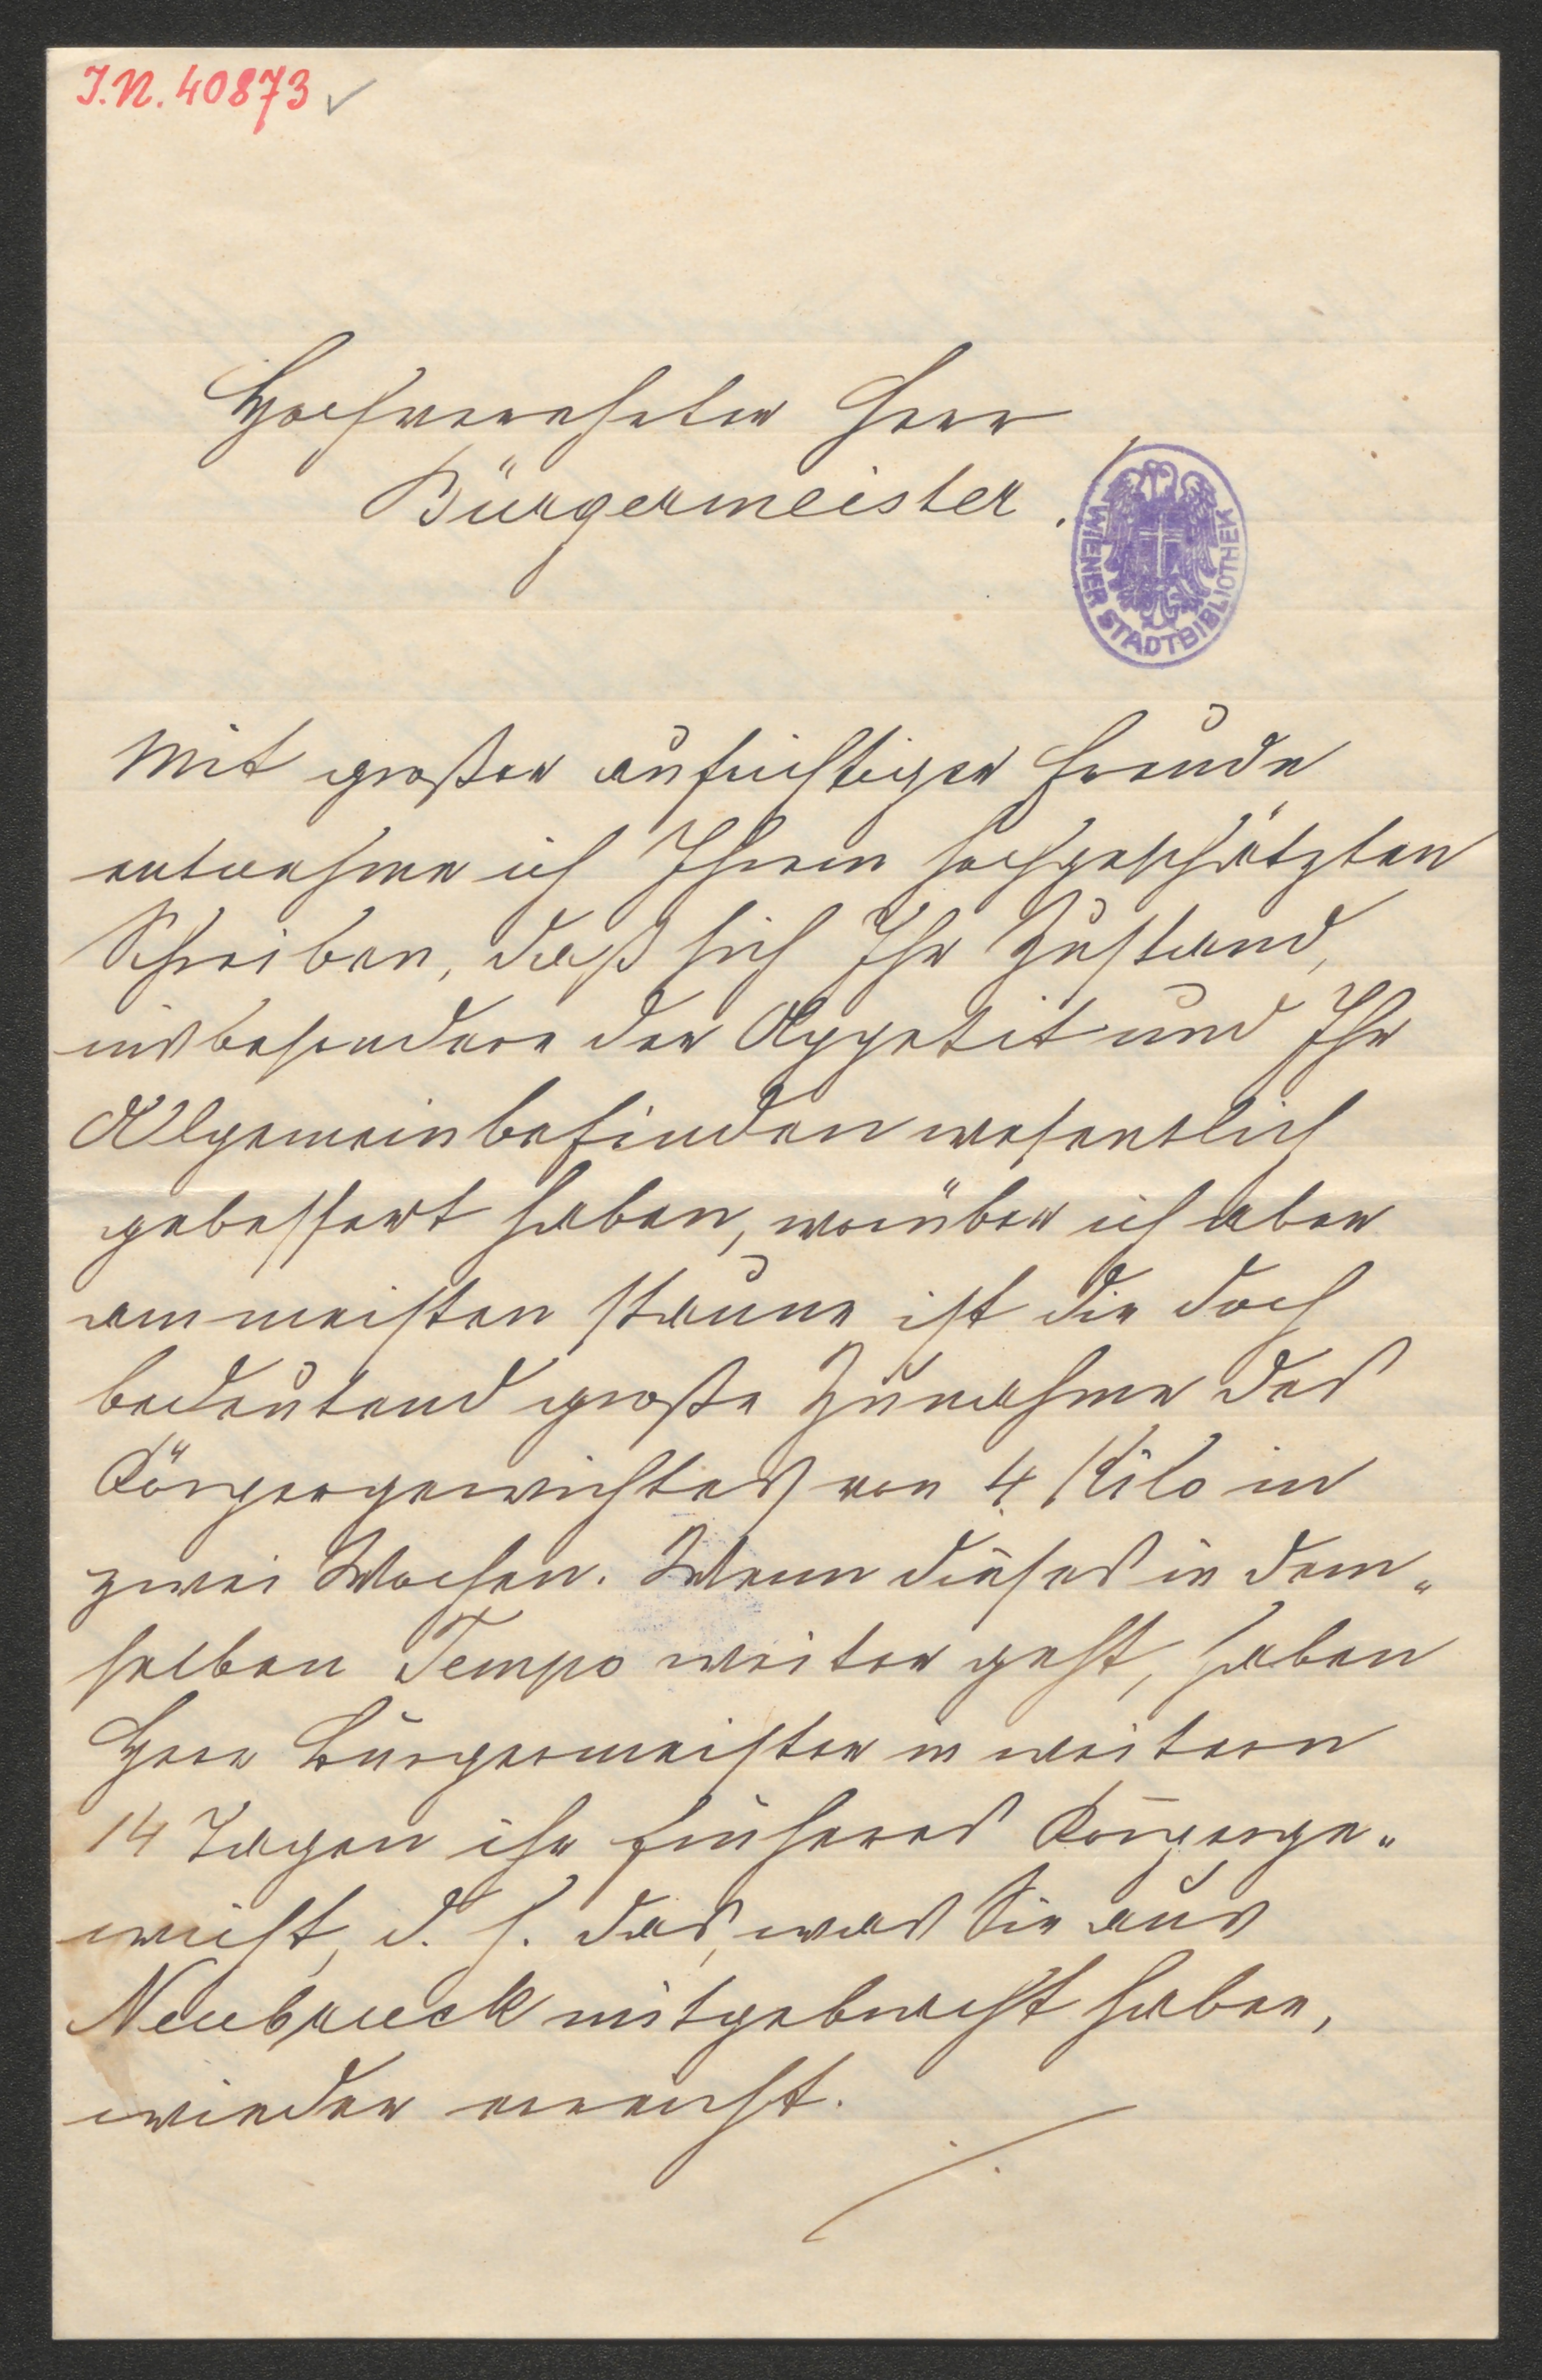 I.N. 40873 ✓
Hochverehrter Herr
Bürgermeister.
WIENER STADTBIBLIOTHEK
Mit großer aufrichtiger Freude
entnehme ich Ihrem hochgeschätzten
Schreiben, daß sich Ihr Zustand,
insbesondere der Appetit und Ihr
Allgemeinbefinden wesentlich
gebessert haben, worüber ich aber
am meisten staune ist die doch
bedeutend große Zunahme des
Körpergewichtes von 4 Kilo in
zwei Wochen. Wenn dieses in dem„
selben Tempo weiter geht, haben
Herr Bürgermeister in weitern
14 Tagen ihr früheres Körperge„
wicht, d. h. das, was Sie aus
Neubruck mitgebracht haben,
wieder erreicht.
./.